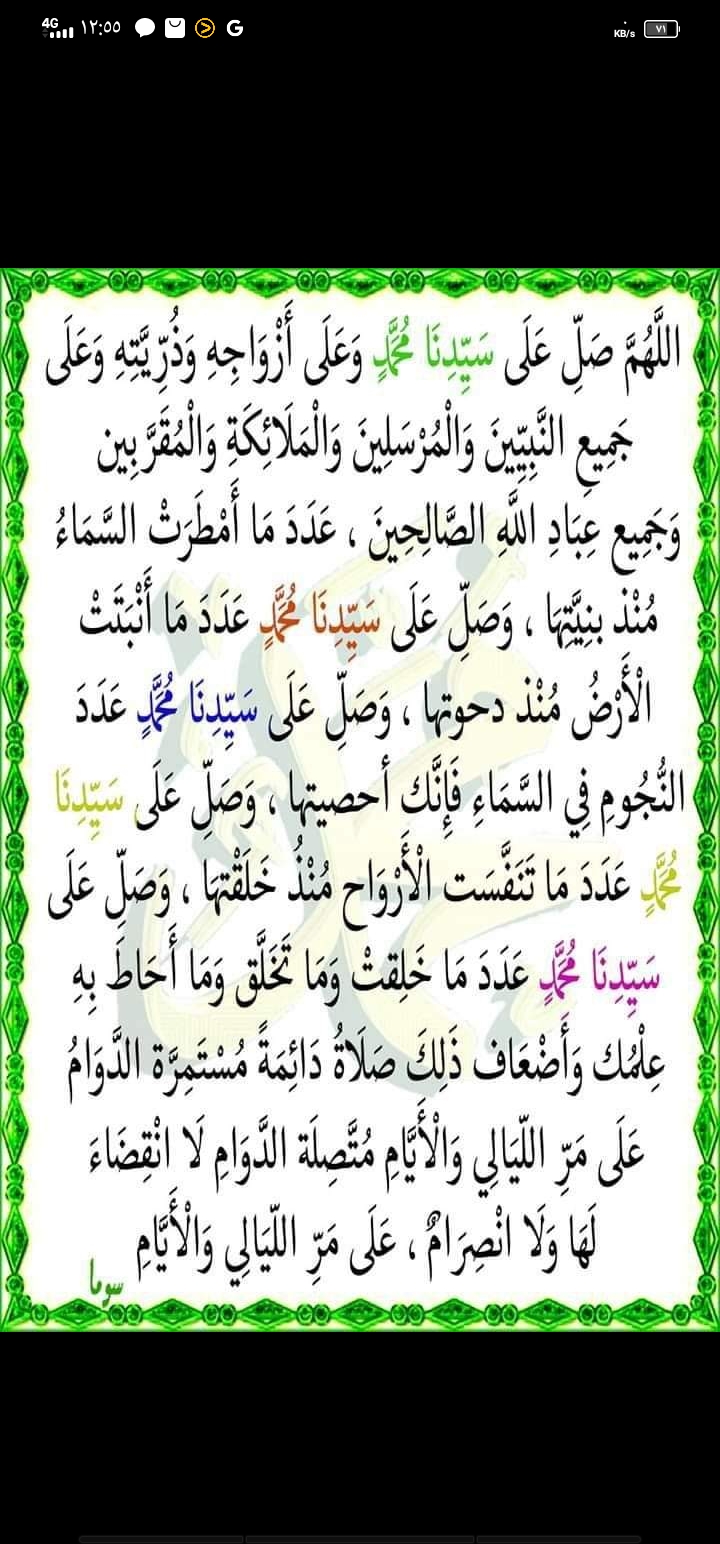 4G ١٢:٥٥ G KB/s ٧١
اللَّهُمَّ صَلِّ عَلَى سَيِّدِنَا مُحَمَّدٍ وَعَلَى أَزْوَاجِهِ وَذُرِّيَّتِهِ وَعَلَى
جَمِيعِ النَّبِيِّينَ وَالْمُرْسَلِينَ وَالْمَلَائِكَةِ وَالْمُقَرَّبِين
وَجَمِيعِ عِبَادِ اللَّهِ الصَّالِحِينَ ، عَدَدَ مَا أَمْطَرَتْ السَّمَاءُ
مُنْذ بنِيَّتِهَا ، وَصَلِّ عَلَى سَيِّدِنَا مُحَمَّدٍ عَدَدَ مَا أَنْبَتَتْ
الْأَرْضُ مُنْذ دحوتها ، وَصَلِّ عَلَى سَيِّدِنَا مُحَمَّدٍ عَدَدَ
النُّجُومِ فِي السَّمَاءِ فَإِنَّك أحصيتها ، وَصَلِّ عَلَى سَيِّدِنَا
مُحَمَّدٍ عَدَدَ مَا تَنَفَّسَت الْأَرْوَاح مُنْذُ خَلَقْتَهَا ، وَصَلِّ عَلَى
سَيِّدِنَا مُحَمَّدٍ عَدَدَ مَا خَلِقتْ وَمَا تَخَلَّق وَمَا أَحَاطَ بِهِ
عِلْمُك وَأَضْعَاف ذَلِكَ صَلَاةُ دَائِمَةً مُسْتَمِرَّة الدَّوَامُ
عَلَى مَرِّ اللَّيَالِي وَالْأَيَّامِ مُتَّصِلَة الدَّوَامِ لَا انْقِضَاءَ
لَهَا وَلَا انْصِرَامٌ ، عَلَى مَرِّ اللَّيَالِي وَالْأَيَّامِ
سوما